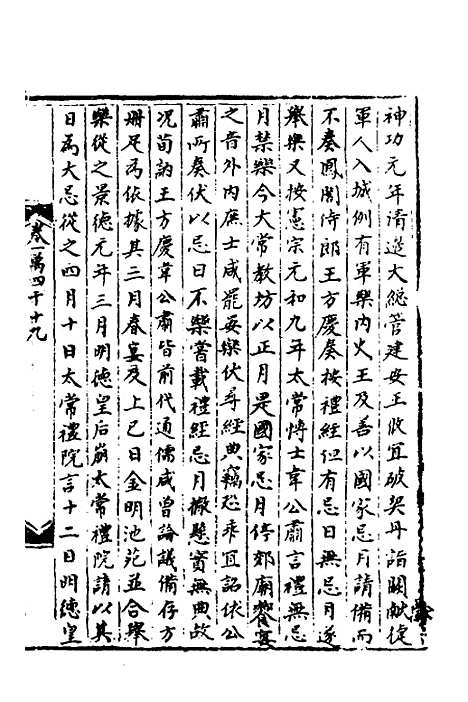 神功元年清邊大總管建安王攸宜破契丹詣闕獻俘
軍人入城例有軍樂內史王及善以國家忌月請備而
不奏鳳閣侍郎王方慶奏按禮經但有忌日無忌月遂
舉樂又按憲宗元和九年太常博士韋公肅言禮無忌
月禁樂今太常教坊以正月是國家忌月停郊廟饗宴
之音外內庶士咸罷宴樂伏尋經典竊恐乖宜詔依公
肅所奏伏以忌日不樂嘗載禮經忌月徹懸實無典故
況荀訥王方慶韋公肅皆前代通儒咸曾論議備存方
冊足為依據其三月春宴及上巳日金明池苑並合舉
樂從之景德元年三月明德皇后崩太常禮院請以其
日為大忌從之四月十日太常禮院言十二日明德皇
卷一萬四千十九